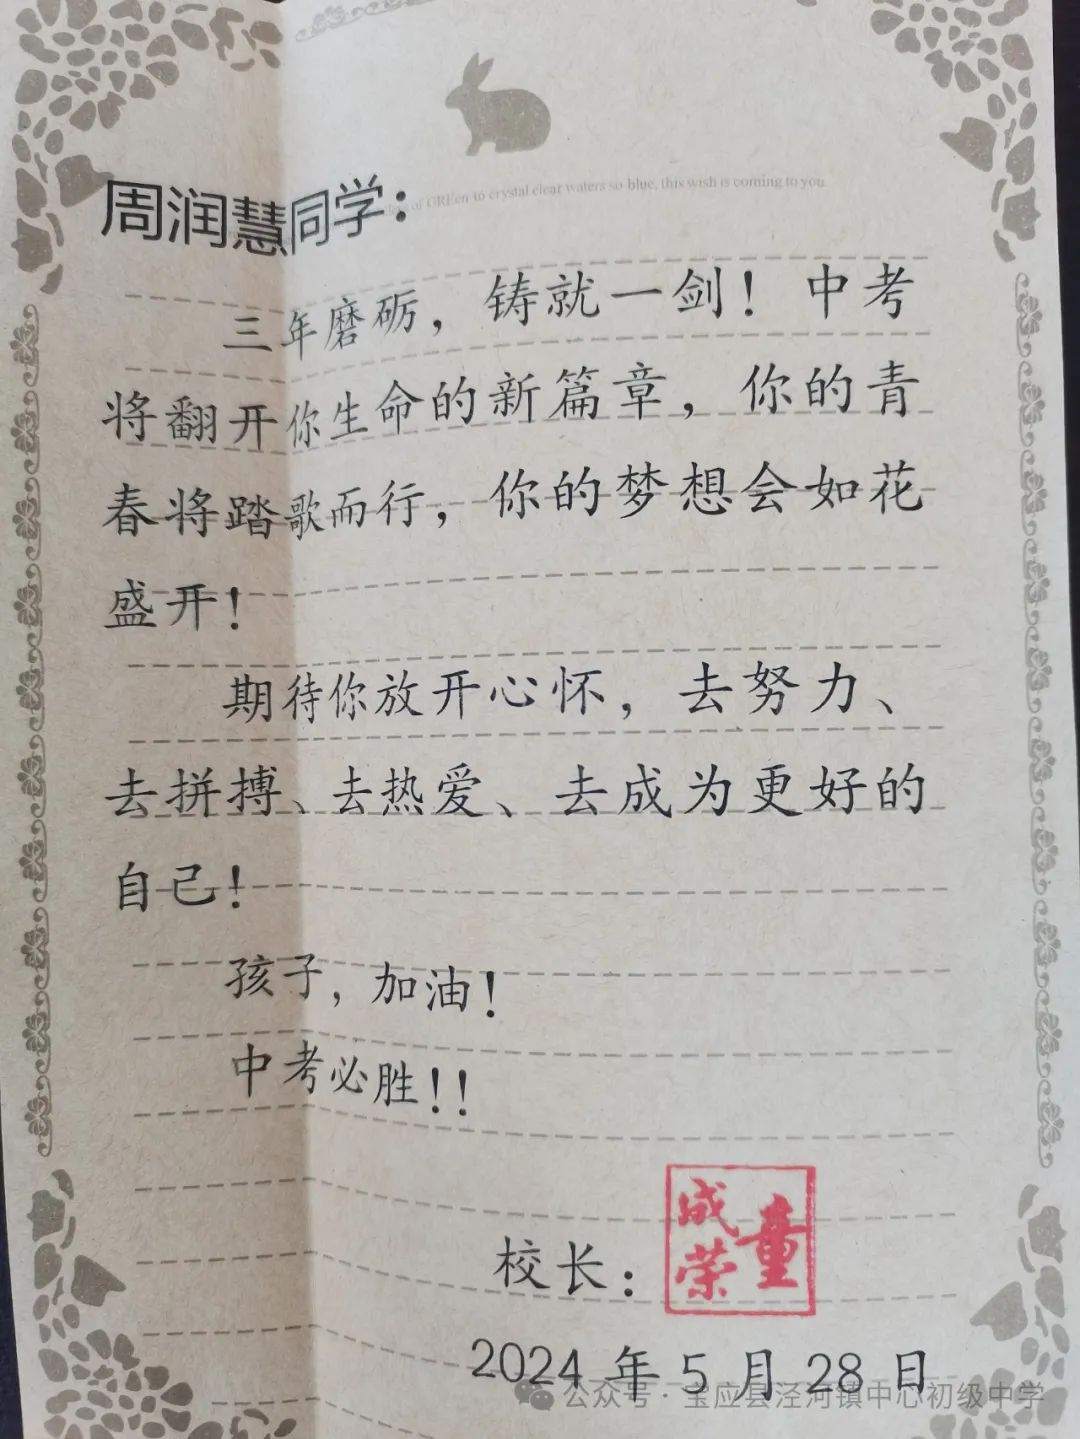 of GREen to crystal clear waters so blue, this wish is coming to you.
周润慧同学：
三年磨砺，铸就一剑！中考
将翻开你生命的新篇章，你的青
春将踏歌而行，你的梦想会如花
盛开！
期待你放开心怀，去努力、
去拼搏、去热爱、去成为更好的
自己！
孩子，加油！
中考必胜！！
校长：
董成荣
2024 年 5 月 28 日
公众号·宝应县泾河镇中心初级中学